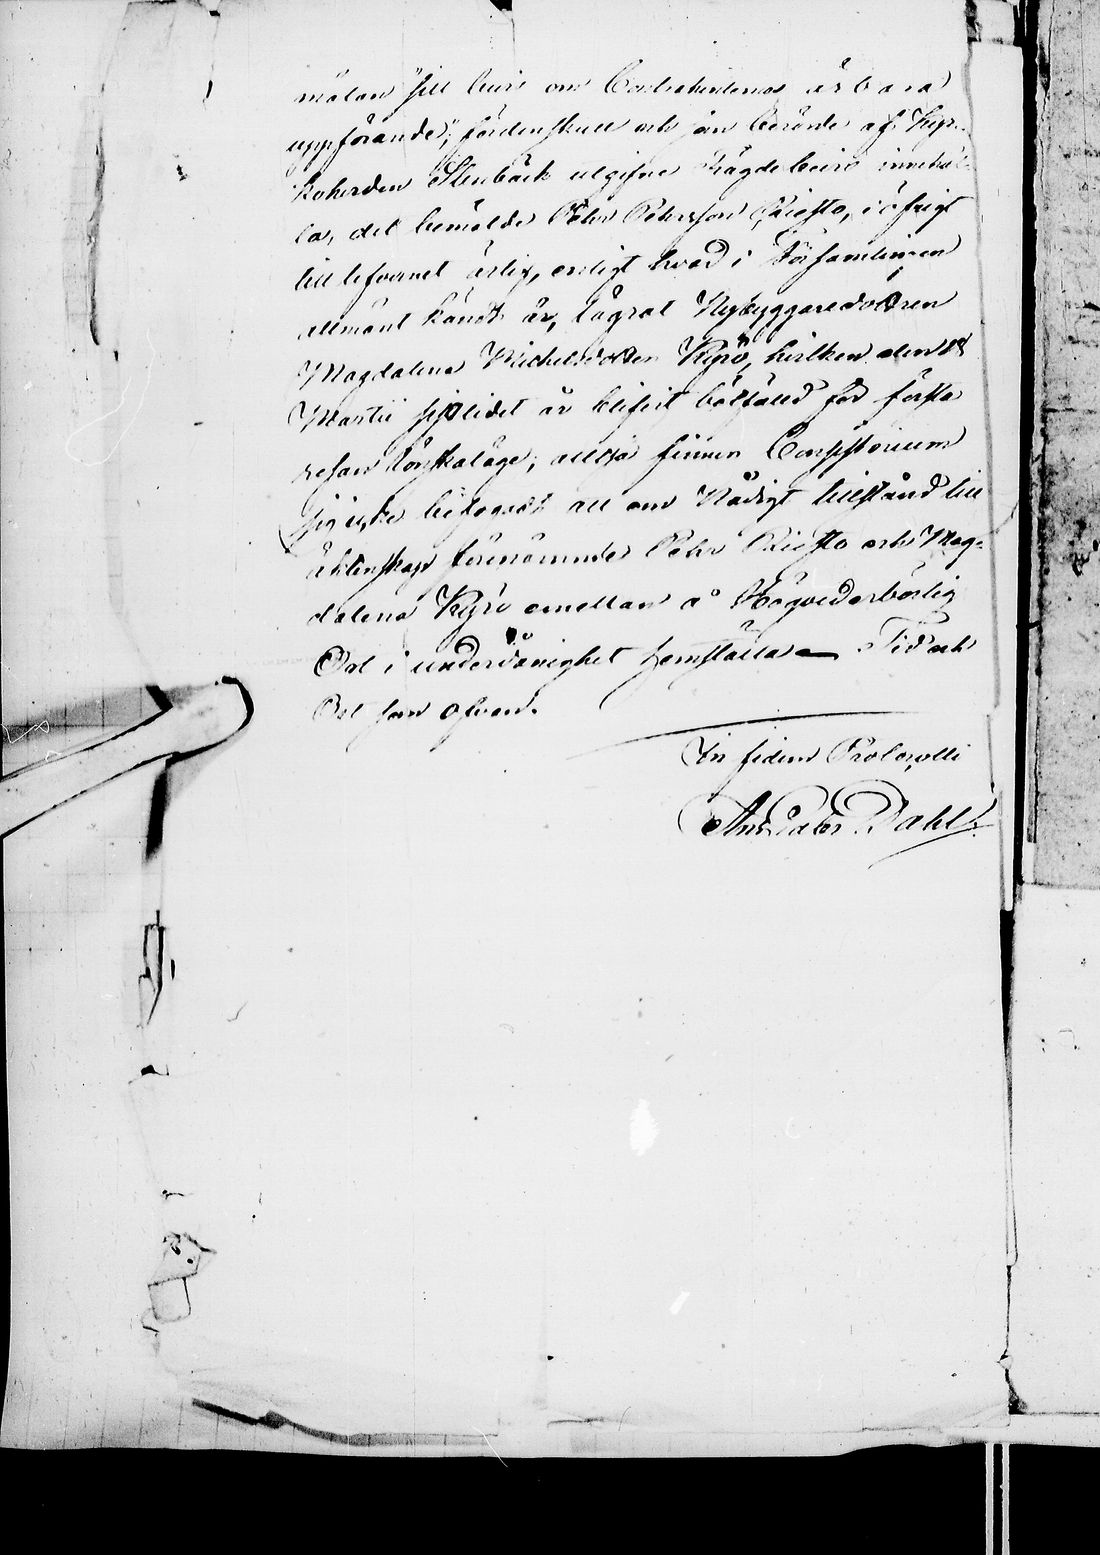 mälan "till bevis om Contrahenternas ärbara
uppförande", fördenskull och som berörde af Kyr-
koherden Stenbäck utgifne Frägdebevis innehål-
la, det bemälde Petter Pehrsson Riesto, i öfrigt
till lefvernet ärlig, enligt hvad i Församlingen
allmänt kändt är, lägrat Nybyggaredottren
Magdalena Michelsdotter Kyrö, hvilken den 18
Martii sistlidet år blifvit bötfäld för första
resan lönskaläge; alltså finner Consistorium
sig icke befogadt att om Nådigt tillstånd till
äktenskap förenämnde Petter Riesto och Mag-
dalena Kyrö emellan å Högvederbörlig
Ort i underdånighet hemställa. Tid och
Ort som ofvan.
In fidem Protocolli
And. Petter Dahl